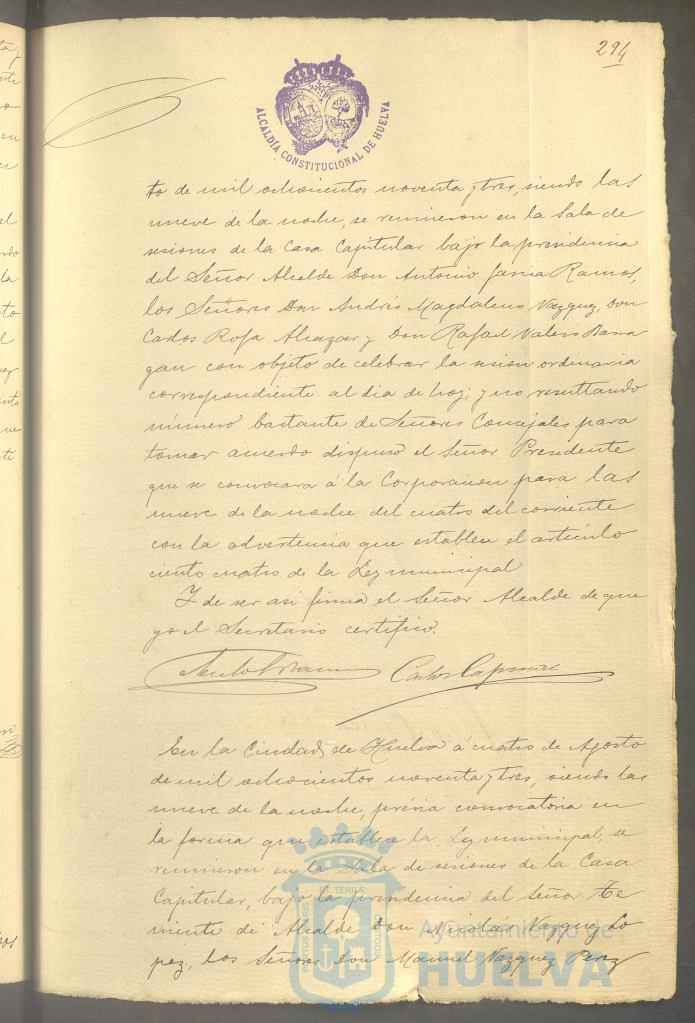 294
ALCALDÍA CONSTITUCIONAL DE HUELVA
to de mil ochocientos noventa y tres, siendo las
nueve de la noche, se reunieron en la Sala de
sesiones de la Casa Capitular bajo la presidencia
del Señor Alcalde Don Antonio Garcia Ramos,
los Señores Don Andrés Magdaleno Vazquez, Don
Carlos Rofa Alcazar y Don Rafael Valero Barra
gan con objeto de celebrar la sesion ordinaria
correspondiente al dia de hoy; y no resultando
número bastante de Señores Concejales para
tomar acuerdo dispuso el Señor Presidente
que se convocara á la Corporacion para las
nueve de la noche del cuatro del corriente
con la advertencia que establece el articulo
ciento cuatro de la Ley municipal
Y de ser asi firma el Señor Alcalde de que
yo el Secretario certifico.
En la Ciudad de Huelva á cuatro de Agosto
de mil ochocientos noventa y tres, siendo las
nueve de la noche, prévia convocatoria en
la forma que establece la Ley municipal, se
reunieron en la Sala de sesiones de la Casa
Capitular, bajo la presidencia del Señor Te
niente de Alcalde Don Nicolás Vazquez Lo
pez, los Señores Don Manuel Vazquez Perez
Ayuntamiento de
HUELVA